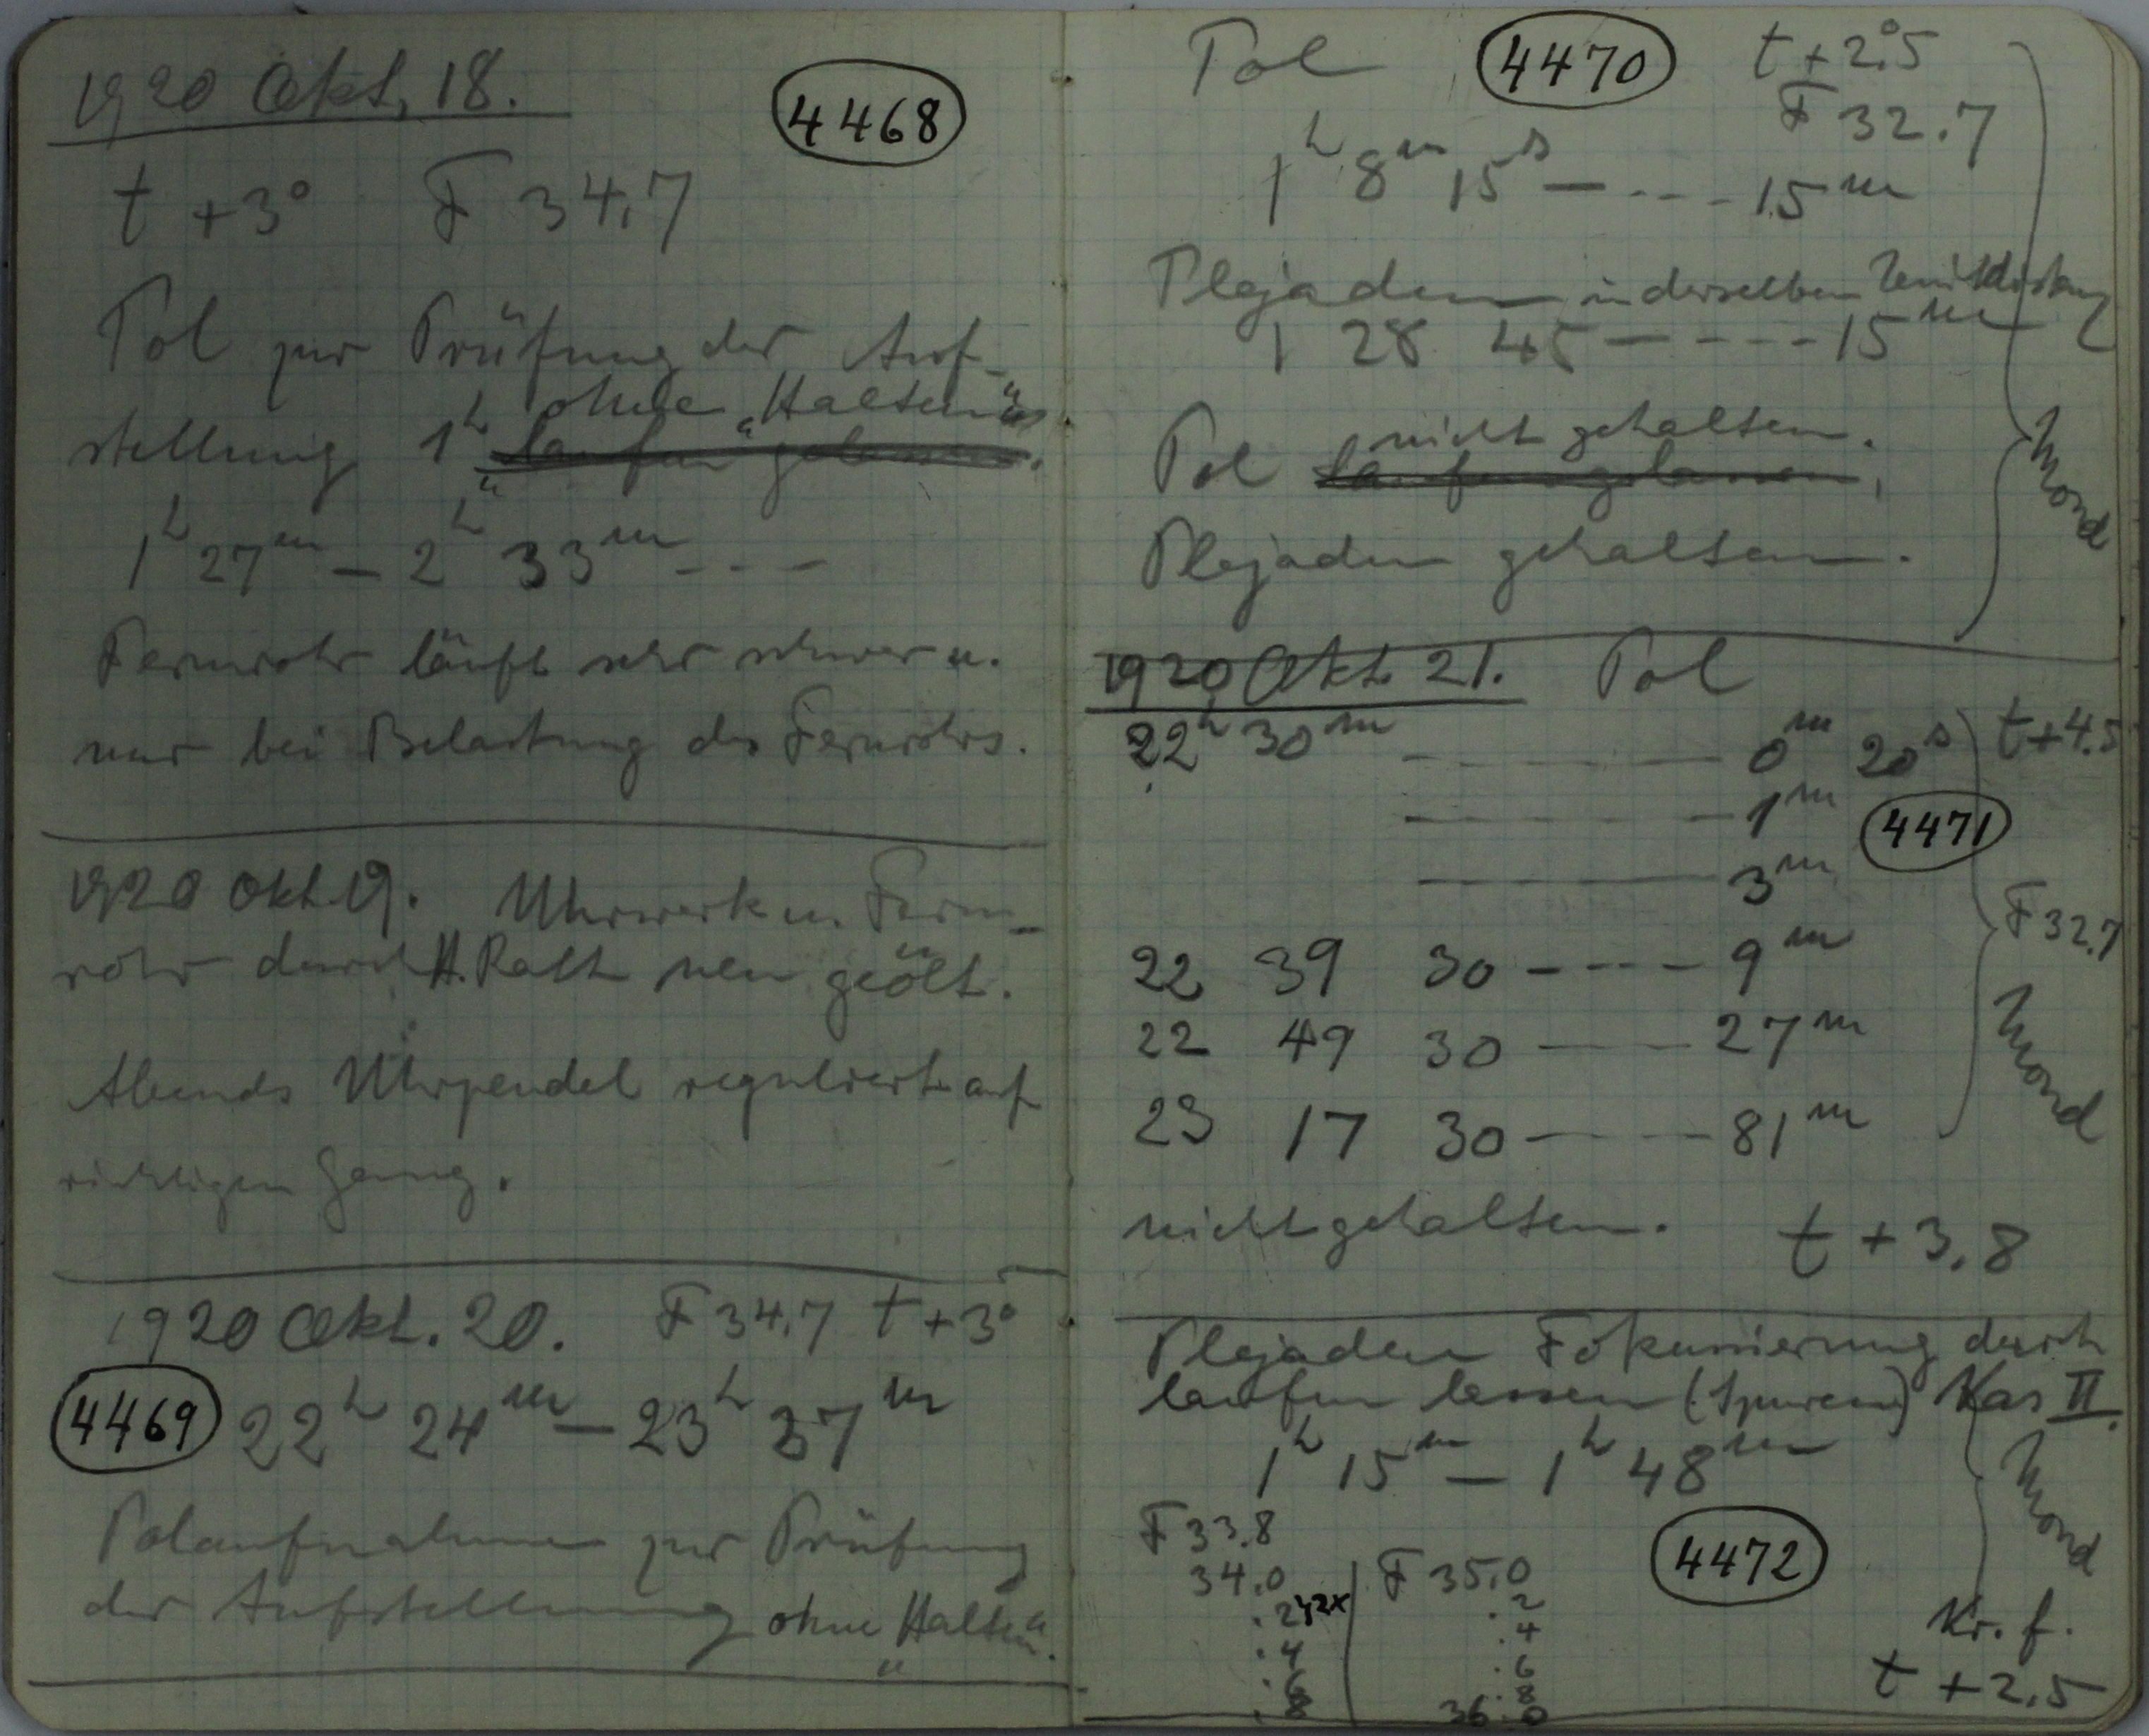 1920 Okt. 18.
4468
t +3° F 34,7
Pol zur Prüfung der Auf-
ohne „Halten“
stellung 1h „laufen gelassen“.
1h 27m — 2h 33m - - -
Fernrohr läuft sehr schwer u.
nur bei Belastung des Fernrohrs.
1920 Okt 19. Uhrwerk u. Fern-
rohr durch H. Rath neu geölt.
Abends Uhrpendel reguliert auf
richtigen Gang.
1920 Okt. 20. F 34,7 t +3°
4469 22h 24m — 23h 37m
Polaufnahme zur Prüfung
der Aufstellung ohne „Halten“.
Pol 4470 t +2°.5
F 32.7
1h 8m 15s — - - - 15m
Plejaden in derselben Zenitdistanz
1 28 45 — - - - - 15m
nicht gehalten.
Pol laufen gelassen,
Plejaden gehalten.
Mond
1920 Okt. 21. Pol
22h 30m - — — — 0m 20s t+4.5
- — — — 1m 4471
— — — 3m
F 32.7
22 39 30 - - - - 9m
22 49 30 — - — 27m
23 17 30 — - — 81m
Mond
nicht gehalten. t + 3,8
Plejaden Fokussierung durch
laufen lassen (Spuren) Kas II.
1h 15m — 1h 48m
Mond
F 33.8
34.0
.2 } 2x
.4
.6
.8
F 35.0
.2
.4
.6
.8
36.0
4472
Kr. f.
t + 2.5